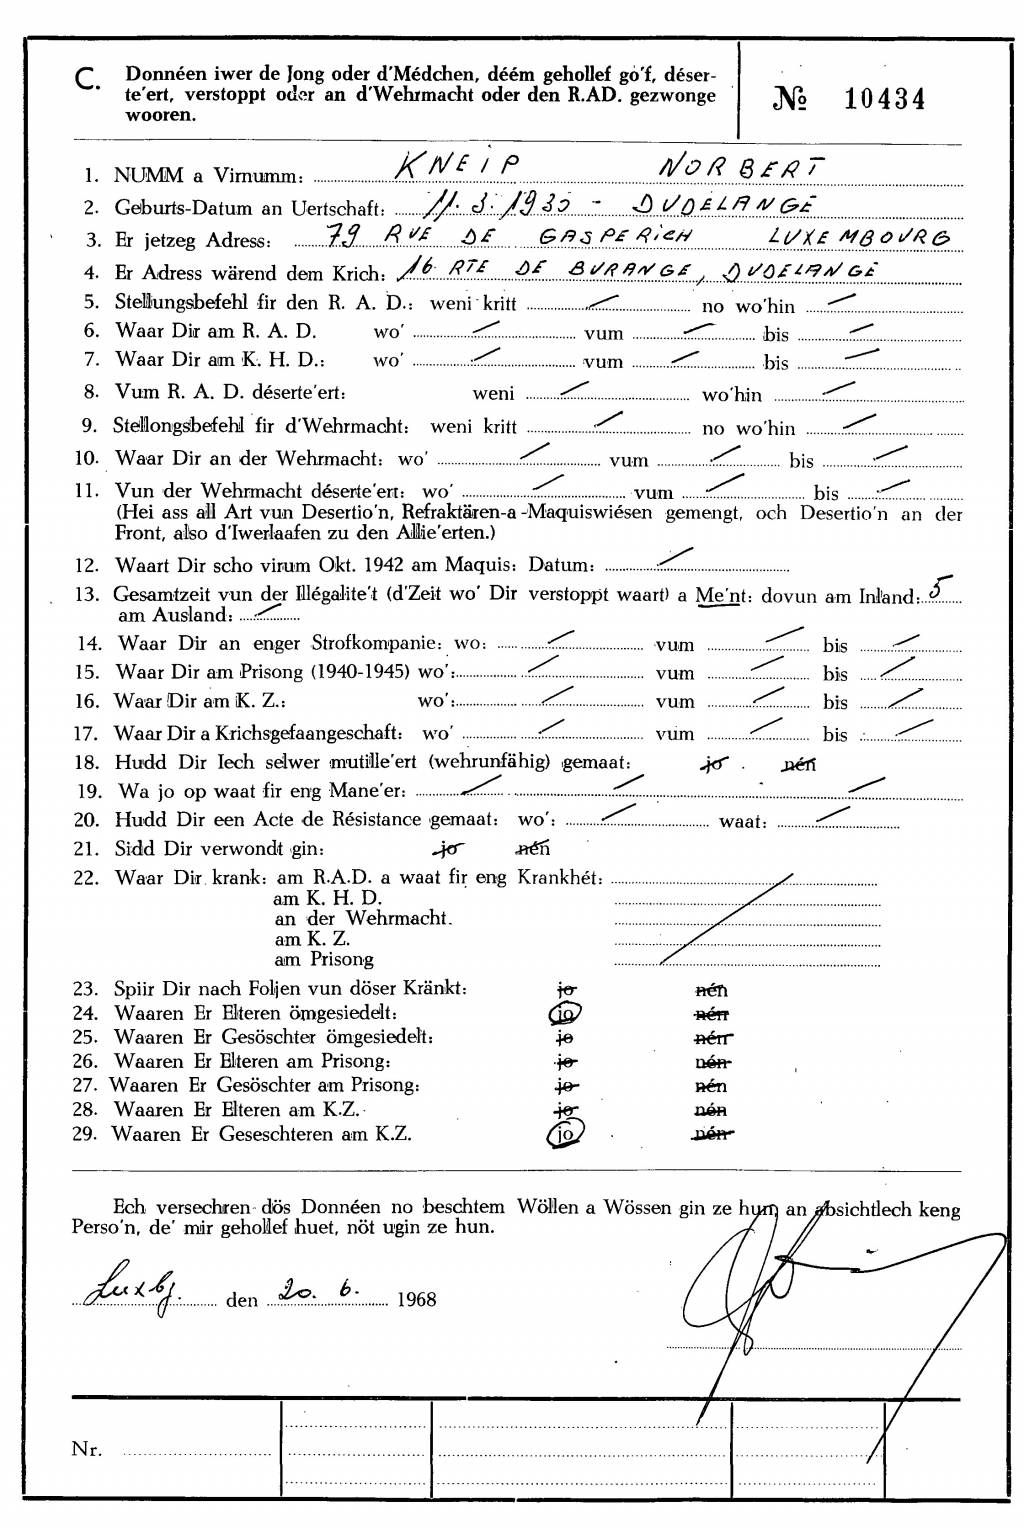 C. Donnéen iwer de Jong oder d'Médchen, déém gehollef go'f, déser-
te'ert, verstoppt oder an d'Wehrmacht oder den R.AD. gezwonge
wooren.
№ 10434
1. NUMM a Virnumm: KNEIP NORBERT
2. Geburts-Datum an Uertschaft: 11.3.1930 - DUDELANGE
3. Er jetzeg Adress: 79 RUE DE GASPERICH LUXEMBOURG
4. Er Adress wärend dem Krich: 16 RTE DE BURANGE, DUDELANGE
5. Stellungsbefehl fir den R. A. D.: weni kritt no wo'hin
6. Waar Dir am R. A. D. wo' vum bis
7. Waar Dir am K. H. D.: wo' vum bis
8. Vum R. A. D. déserte'ert: weni wo'hin
9. Stellongsbefehl fir d'Wehrmacht: weni kritt no wo'hin
10. Waar Dir an der Wehrmacht: wo' vum bis
11. Vun der Wehrmacht déserte'ert: wo' vum bis
(Hei ass all Art vun Desertio'n, Refraktären-a-Maquiswiésen gemengt, och Desertio'n an der
Front, also d'Iwerlaafen zu den Allie'erten.)
12. Waart Dir scho virum Okt. 1942 am Maquis: Datum:
13. Gesamtzeit vun der Illégalite't (d'Zeit wo' Dir verstoppt waart) a Me'nt: dovun am Inland: 5
am Ausland:
14. Waar Dir an enger Strofkompanie: wo: vum bis
15. Waar Dir am Prisong (1940-1945) wo': vum bis
16. Waar Dir am K. Z.: wo': vum bis
17. Waar Dir a Krichsgefaangeschaft: wo' vum bis
18. Hudd Dir Iech selwer mutille'ert (wehrunfähig) gemaat: jo nén
19. Wa jo op waat fir eng Mane'er:
20. Hudd Dir een Acte de Résistance gemaat: wo': waat:
21. Sidd Dir verwondt gin: jo nén
22. Waar Dir krank: am R.A.D. a waat fir eng Krankhét:
am K. H. D.
an der Wehrmacht.
am K. Z.
am Prisong
23. Spiir Dir nach Foljen vun döser Kränkt: jo nén
24. Waaren Er Elteren ömgesiedelt: jo nén
25. Waaren Er Gesöschter ömgesiedelt: jo nén
26. Waaren Er Elteren am Prisong: jo nén
27. Waaren Er Gesöschter am Prisong: jo nén
28. Waaren Er Elteren am K.Z. jo nén
29. Waaren Er Geseschteren am K.Z. jo nén
Ech versechren dös Donnéen no beschtem Wöllen a Wössen gin ze hun, an absichtlech keng
Perso'n, de' mir gehollef huet, nöt ugin ze hun.
Luxbg. den 20. 6. 1968
Nr.